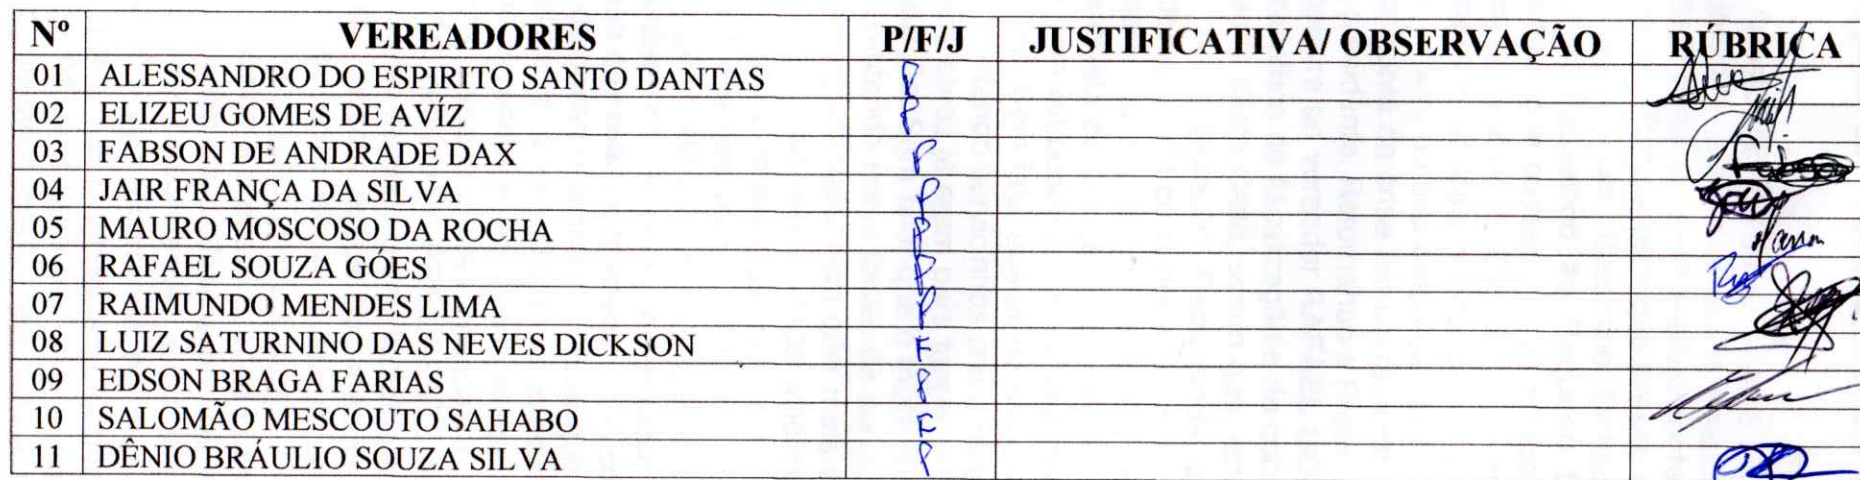 Nº VEREADORES P/F/J JUSTIFICATIVA/ OBSERVAÇÃO RÚBRICA
01 ALESSANDRO DO ESPIRITO SANTO DANTAS P
02 ELIZEU GOMES DE AVÍZ P
03 FABSON DE ANDRADE DAX P Fabson
04 JAIR FRANÇA DA SILVA P
05 MAURO MOSCOSO DA ROCHA P
06 RAFAEL SOUZA GÓES P
07 RAIMUNDO MENDES LIMA P
08 LUIZ SATURNINO DAS NEVES DICKSON F
09 EDSON BRAGA FARIAS P
10 SALOMÃO MESCOUTO SAHABO F
11 DÊNIO BRÁULIO SOUZA SILVA P